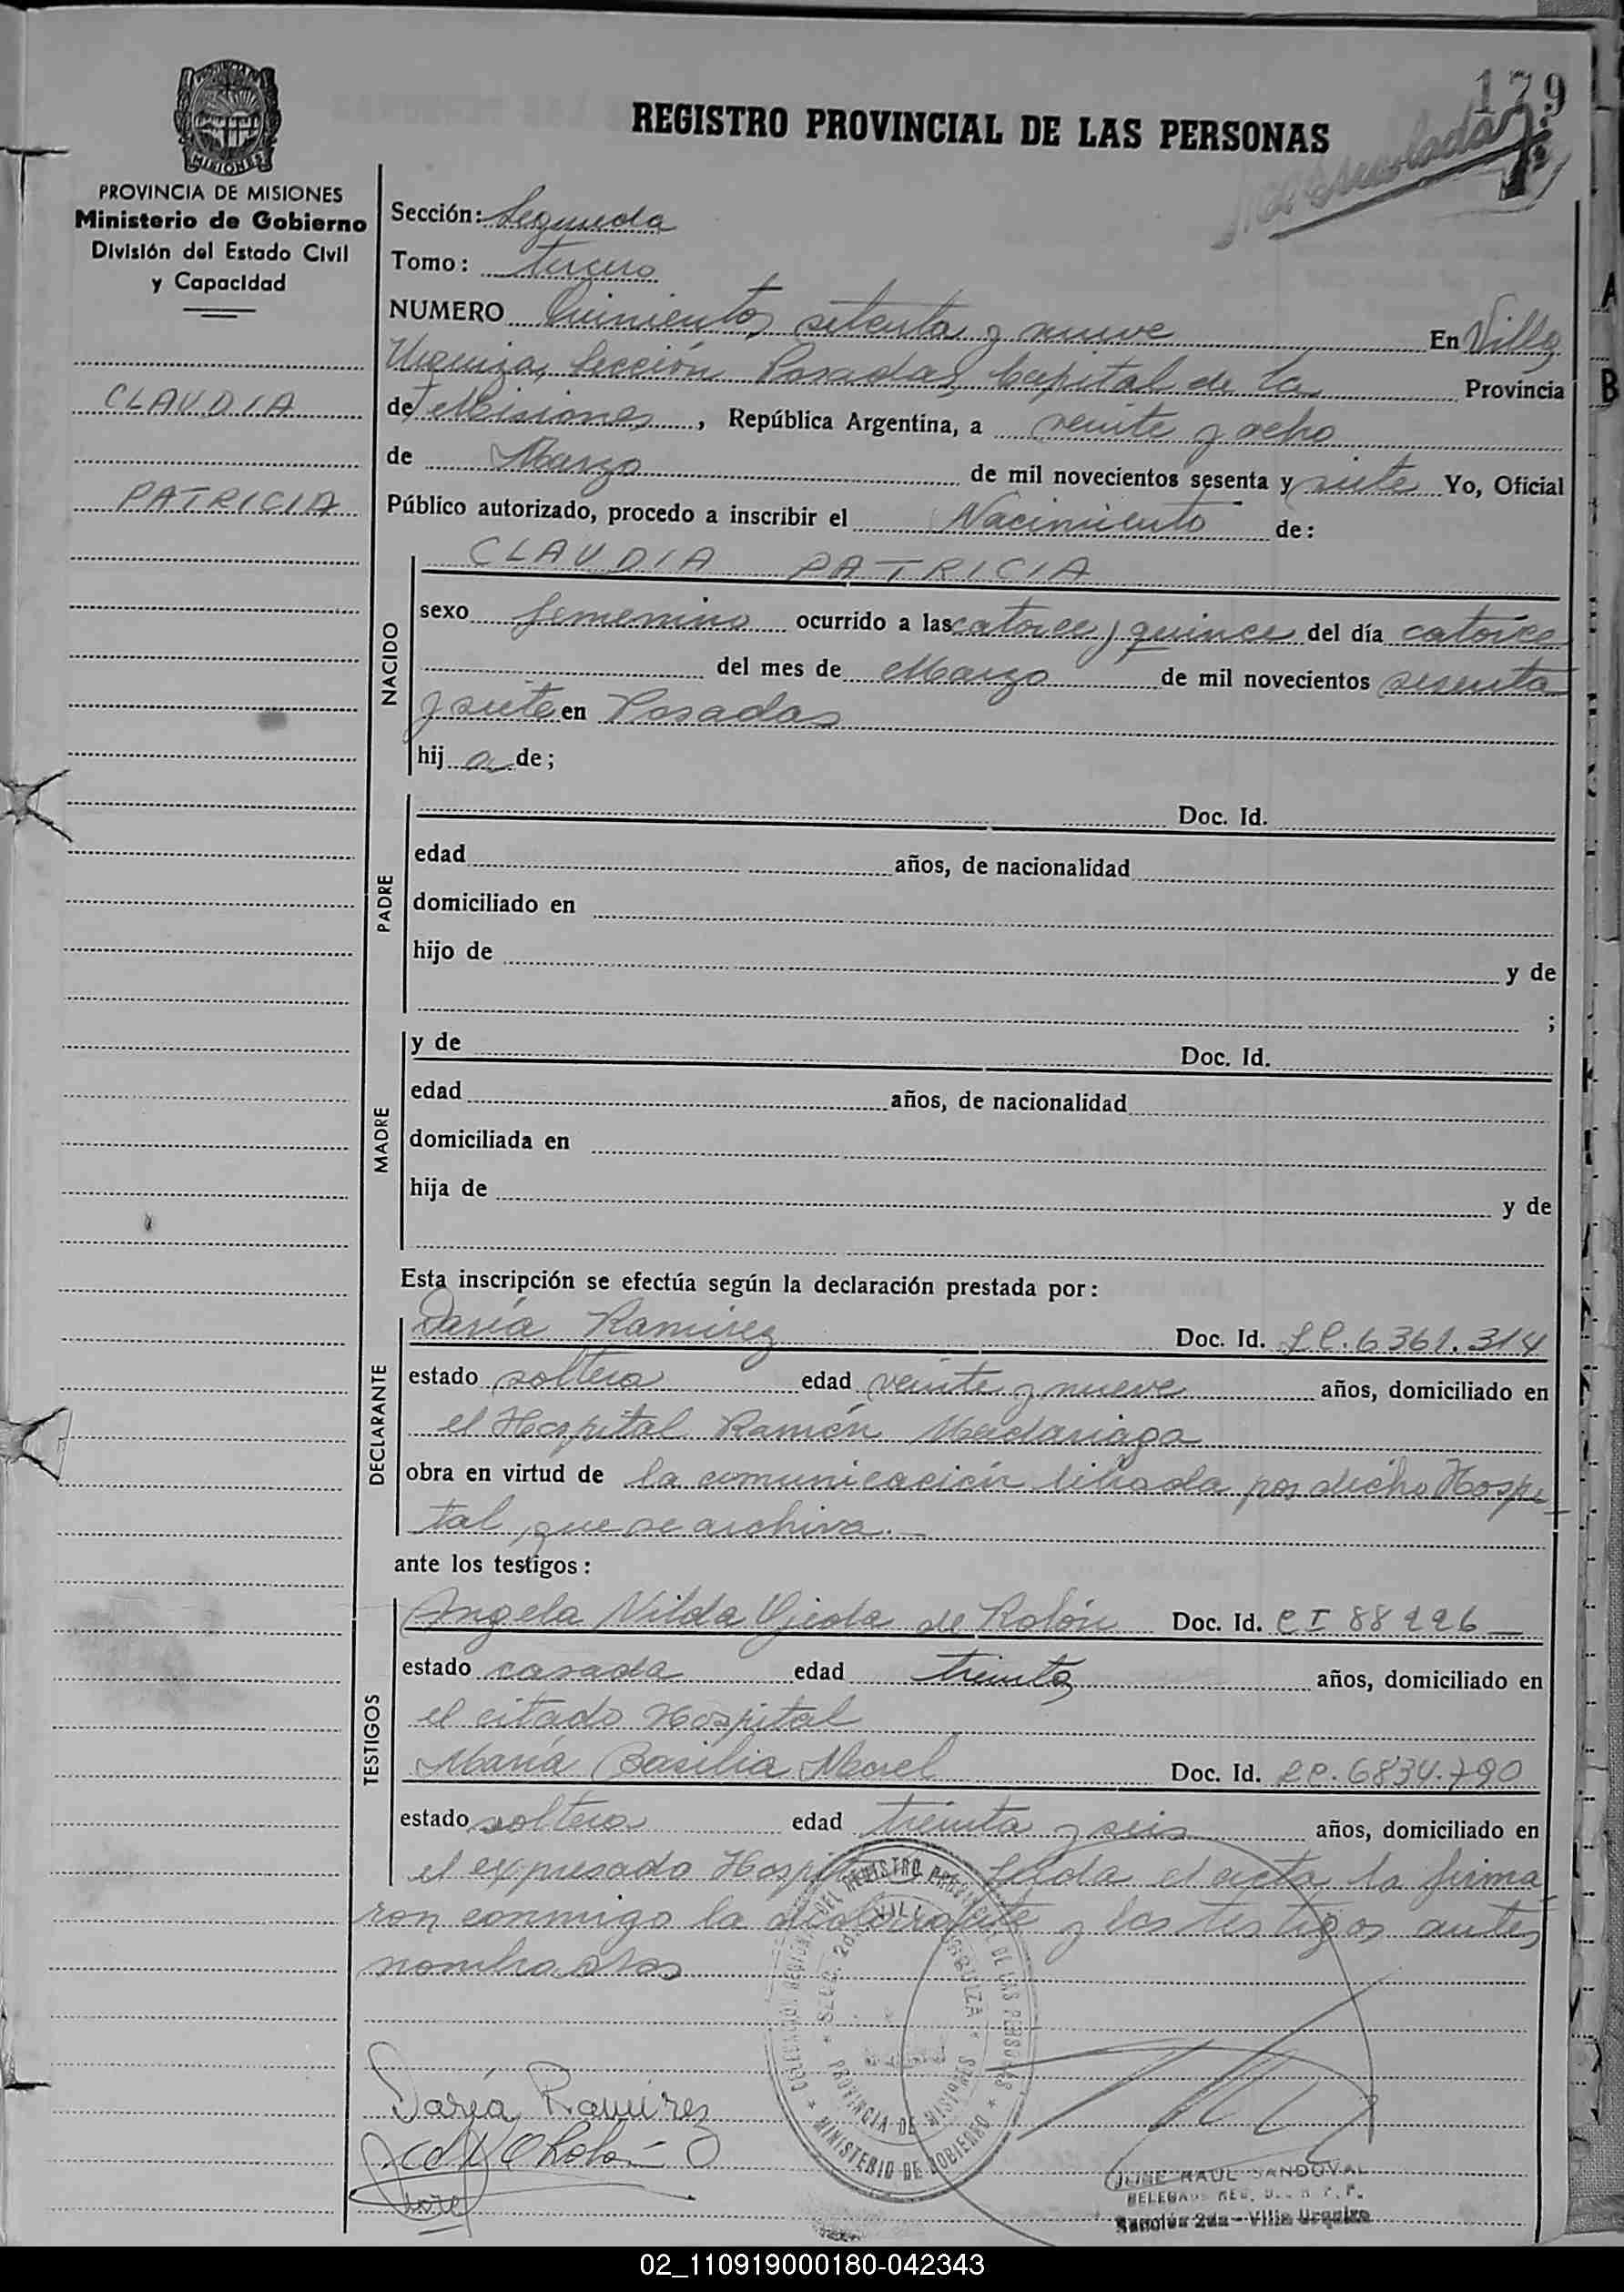 179
REGISTRO PROVINCIAL DE LAS PERSONAS
MISIONES
PROVINCIA DE MISIONES
Ministerio de Gobierno
División del Estado Civil
y Capacidad
CLAUDIA
PATRICIA
Sección: Segunda
Tomo: tercero
NUMERO Quinientos setenta y nueve En Villa
Urquiza, Sección Posadas, Capital de la Provincia
de Misiones, República Argentina, a veinte y ocho
de Marzo de mil novecientos sesenta y siete Yo, Oficial
Público autorizado, procedo a inscribir el Nacimiento de:
CLAUDIA PATRICIA
NACIDO
sexo femenino ocurrido a las catorce y quince del día catorce
del mes de Marzo de mil novecientos sesenta
y siete en Posadas
hij a de;
PADRE
Doc. Id.
edad años, de nacionalidad
domiciliado en
hijo de y de
;
MADRE
y de Doc. Id.
edad años, de nacionalidad
domiciliada en
hija de y de
Esta inscripción se efectúa según la declaración prestada por:
DECLARANTE
Daría Ramirez Doc. Id. L.C. 6361.314
estado soltera edad veinte y nueve años, domiciliado en
el Hospital Ramón Madariaga
obra en virtud de la comunicación librada por dicho Hospi-
tal, que se archiva.-
ante los testigos:
TESTIGOS
Angela Nilda Ojeda de Rolón Doc. Id. CI 88226
estado casada edad treinta años, domiciliado en
el citado Hospital
María Basilia Morel Doc. Id. LC. 6834.790
estado soltera edad treinta y seis años, domiciliado en
el expresado Hospital Leída el acta la firma
ron conmigo la declarante y los testigos antes
nombrados
DELEGACION REGIONAL DEL REGISTRO PROVINCIAL DE LAS PERSONAS
SECC. 2da. VILLA URQUIZA
PROVINCIA DE MISIONES
MINISTERIO DE GOBIERNO
Daría Ramirez
Rolón
Morel
JOSE RAUL SANDOVAL
DELEGADO REG. DEL R. P. P.
Sección 2da - Villa Urquiza
02_110919000180-042343